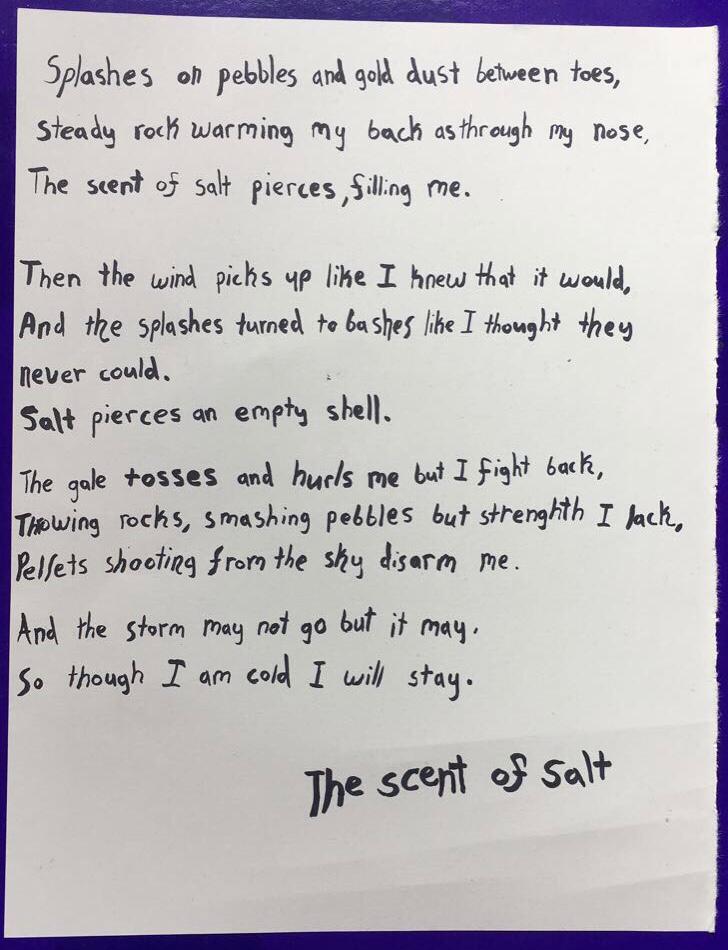 Splashes on pebbles and gold dust between toes,
steady rock warming my back as through my nose,
The scent of salt pierces, filling me.
Then the wind picks up like I knew that it would,
And the splashes turned to bashes like I thought they
never could.
Salt pierces an empty shell.
The gale tosses and hurls me but I fight back,
Thowing rocks, smashing pebbles but strenghth I lack,
Pellets shooting from the sky disarm me.
And the storm may not go but it may.
So though I am cold I will stay.
The scent of salt